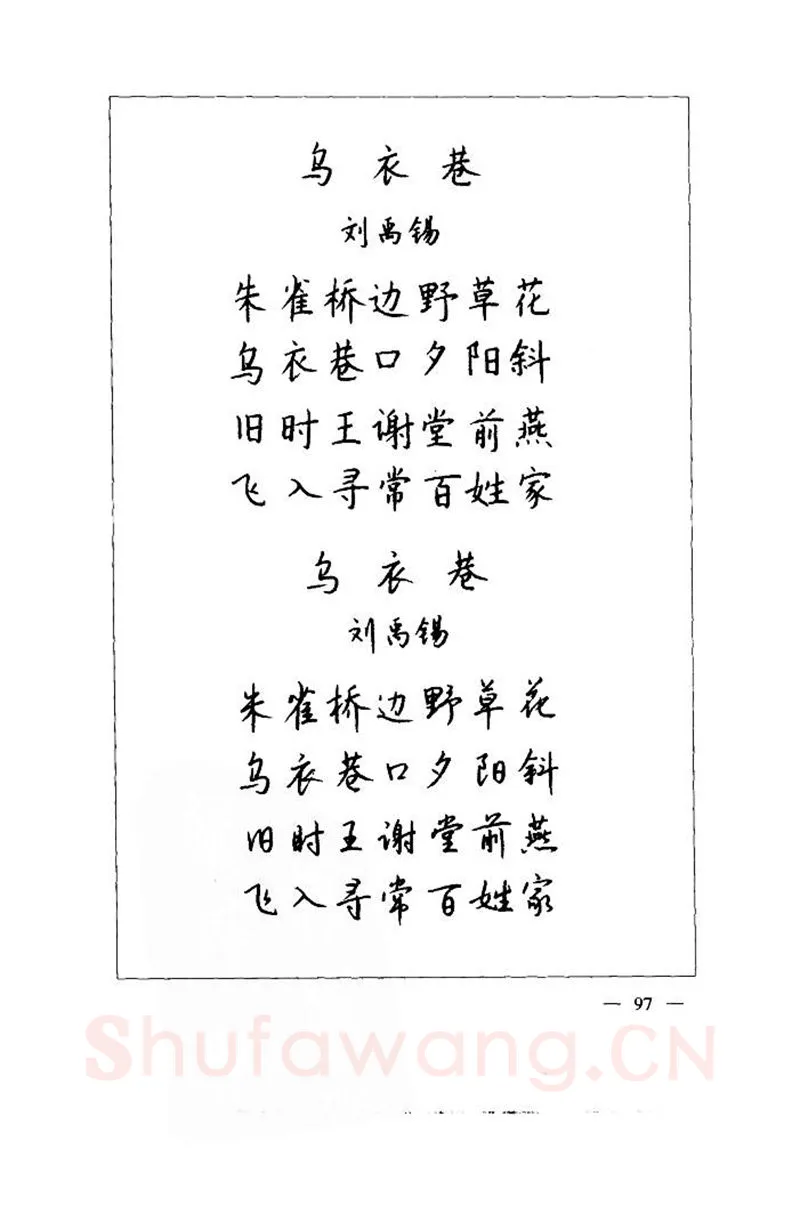 乌衣巷
刘禹锡
朱雀桥边野草花
乌衣巷口夕阳斜
旧时王谢堂前燕
飞入寻常百姓家
乌衣巷
刘禹锡
朱雀桥边野草花
乌衣巷口夕阳斜
旧时王谢堂前燕
飞入寻常百姓家
— 97 —
Shufawang.CN